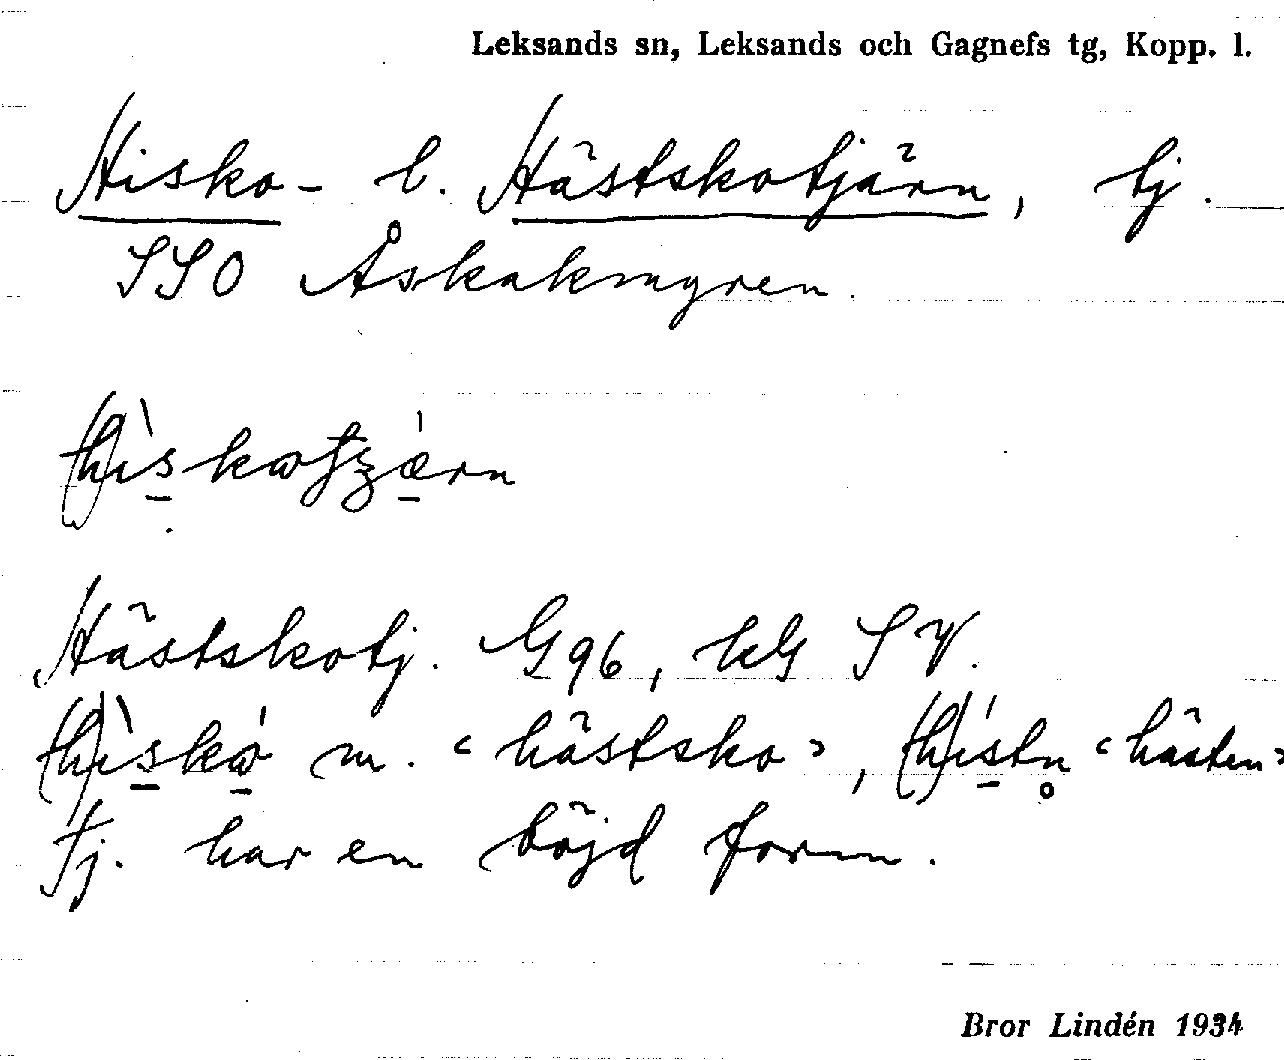 Leksands sn, Leksands och Gagnefs tg, Kopp. l.
Hisko- l. Hästskotjärn, tj.
SSO Åskakmyren.
(h)ìskωtʒǽrn
Hästskotj. G96, kG SV.
(h)ìskώ m. ‹hästsko›, (h)ístn̥ ‹hästen›
Tj. har en böjd form.
Bror Lindén 1934